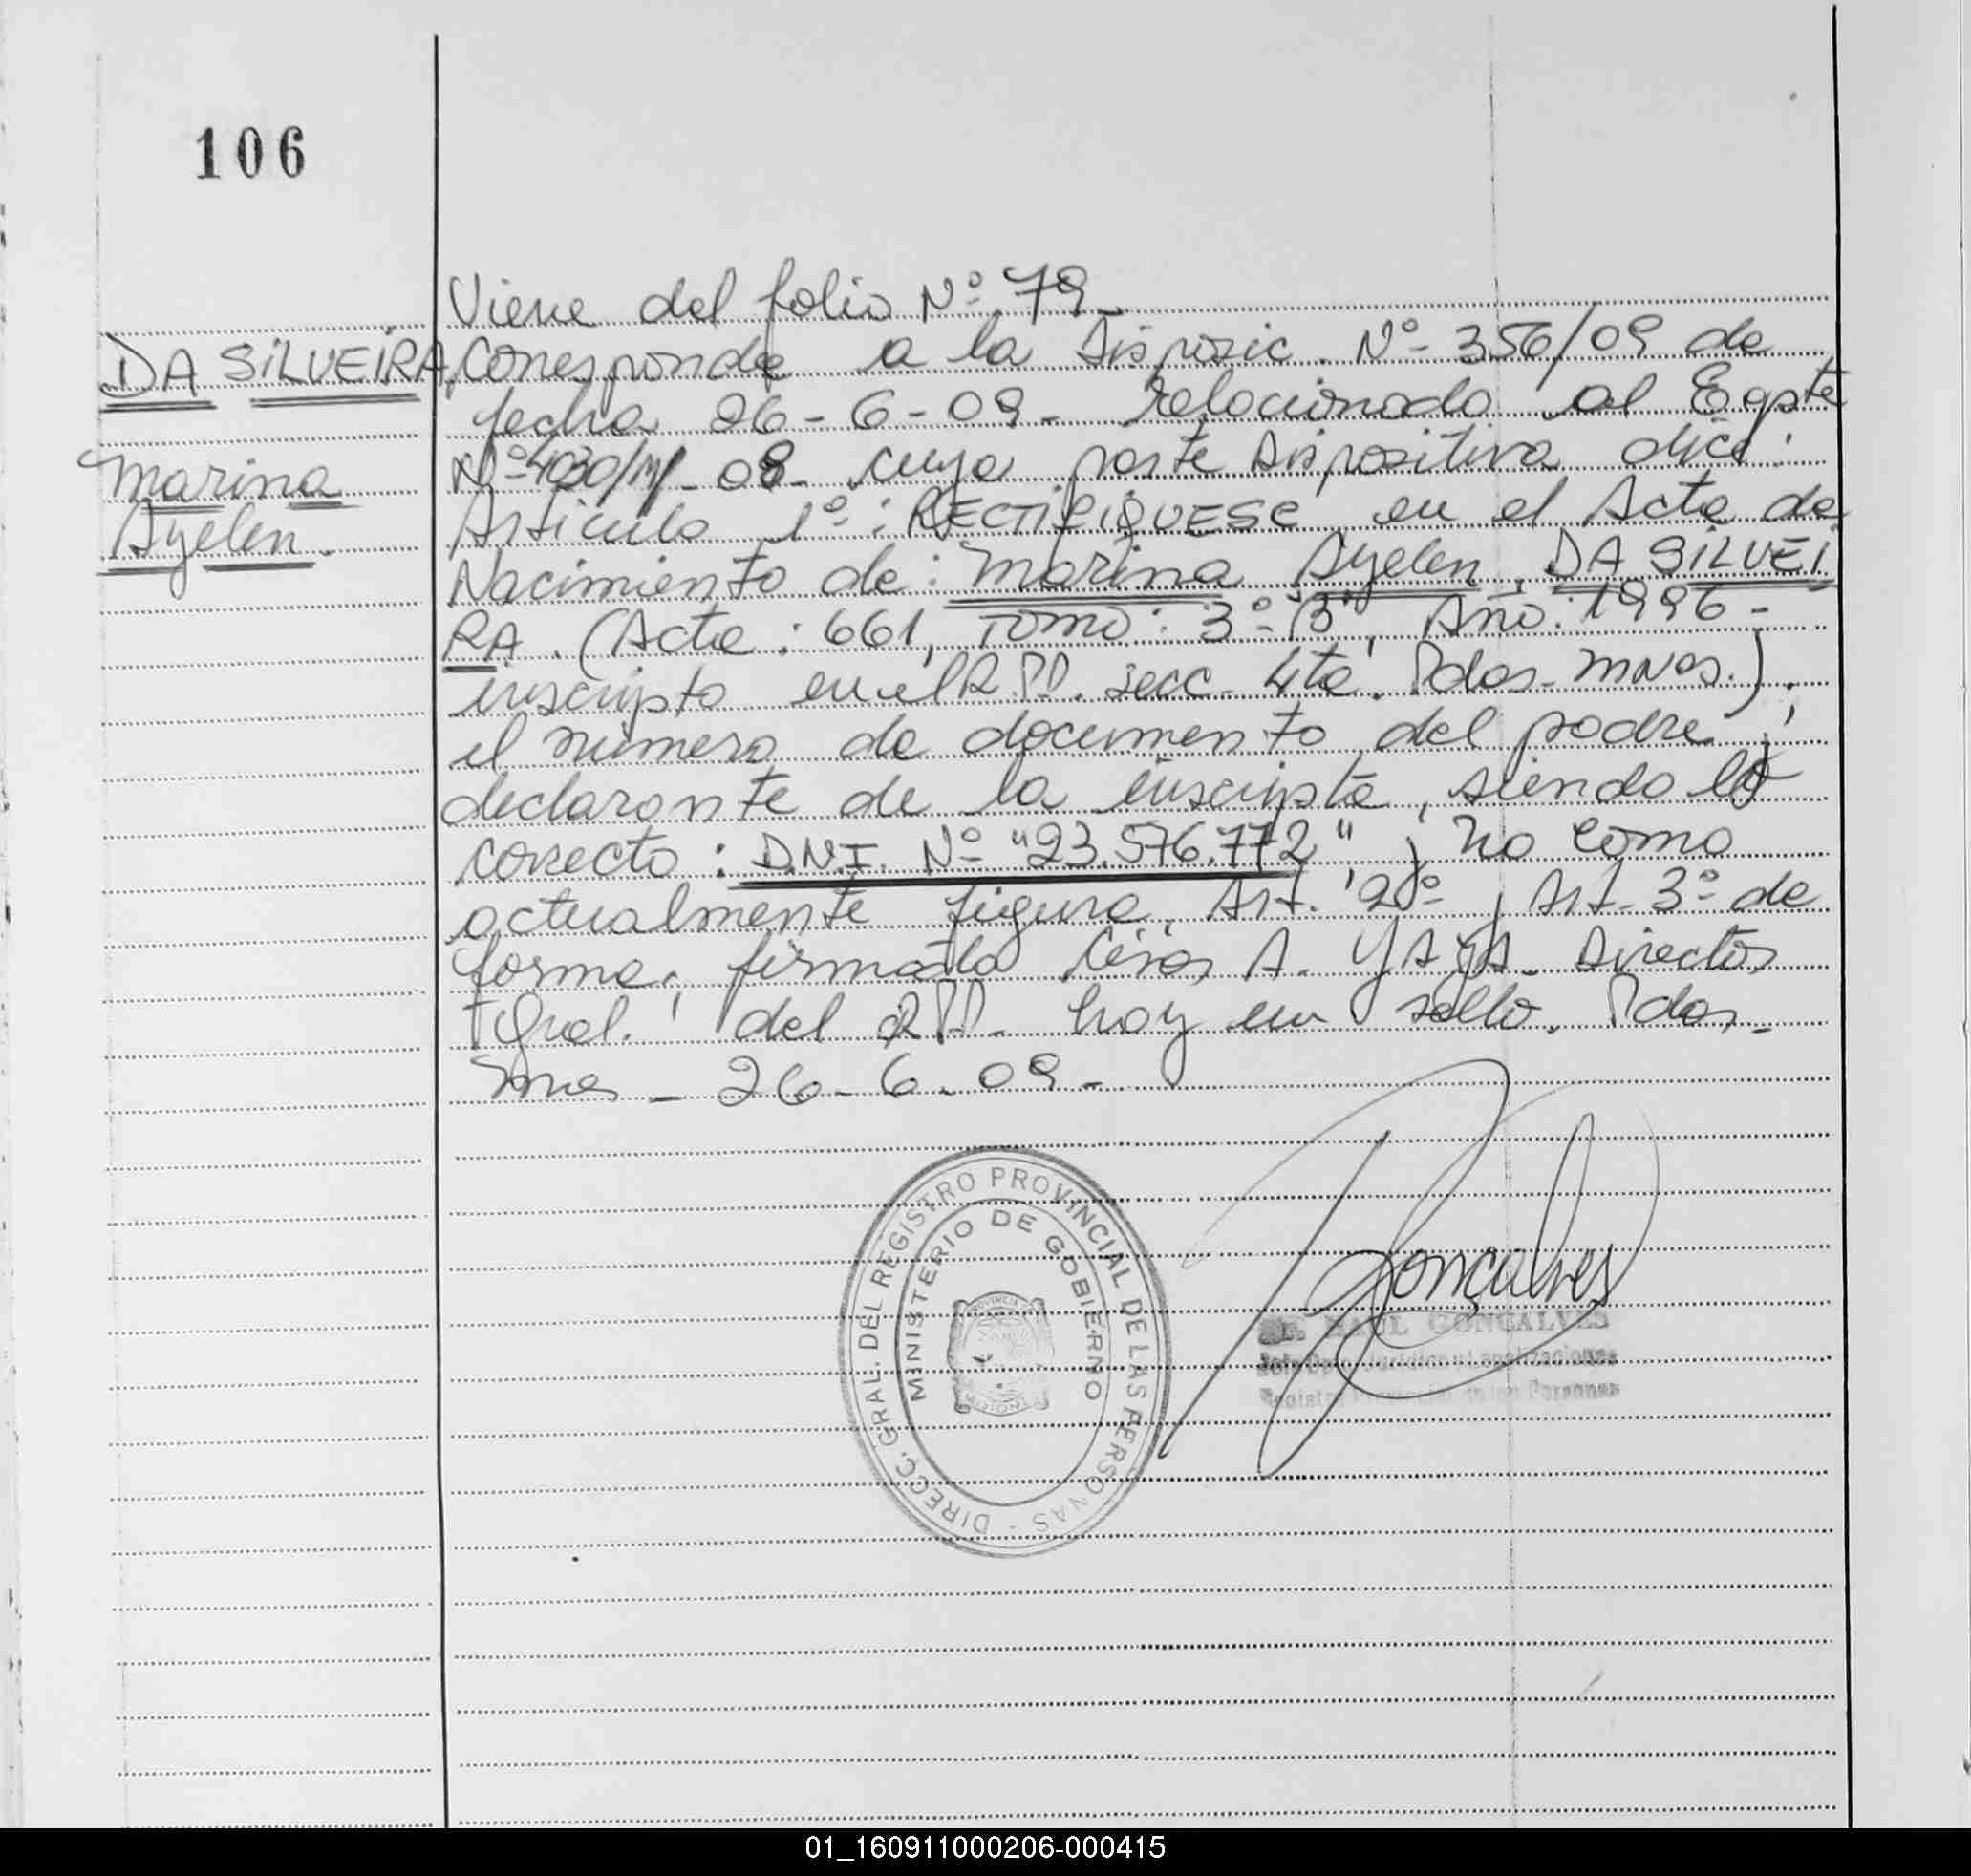 106
Viene del folio Nº 79
DA SILVEIRA, Corresponde a la Disposic. Nº 356/09 de
fecha 26-6-09- relacionado al Expte
Marina
Nº 4030/M-08- cuya parte Dispositiva dice:
Ayelen.
Articulo 1º: RECTIFIQUESE en el Acta de
Nacimiento de: Marina Ayelen, DA SILVEI
RA. (Acta: 661, Tomo: 3º-"B", Año: 1996-
inscripto en el R.P.P. secc- 4ta. Pdas-Mnes.),
el numero de documento del padre y
declarante de la inscripta, siendo lo
correcto: D.N.I. Nº "23.576.772" y no como
actualmente figura. Art. 2º y Art. 3º de
forma. firmado A. YAYA. Director
Gral. del RPP- hoy un sello. Pdas-
Mnes- 26-6-09-
DIRECC. GRAL. DEL REGISTRO PROVINCIAL DE LAS PERSONAS -
MINISTERIO DE GOBIERNO
Gonçalves
RAUL GONCALVES
Jefe Dpto. Jurídico y Legalizaciones
Registro Provincial de las Personas
01_160911000206-000415